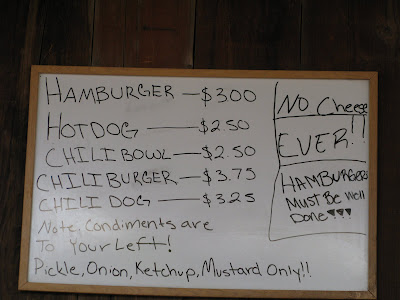 HAMBURGER — $300
HOTDOG — $2.50
CHILI BOWL — $2.50
CHILI BURGER — $3.75
CHILI DOG — $325
Note, Condiments are
To Your Left!
Pickle, Onion, Ketchup, Mustard Only!!
NO Cheese
EVER!!
HAMBURGERS
MUST Be Well
Done